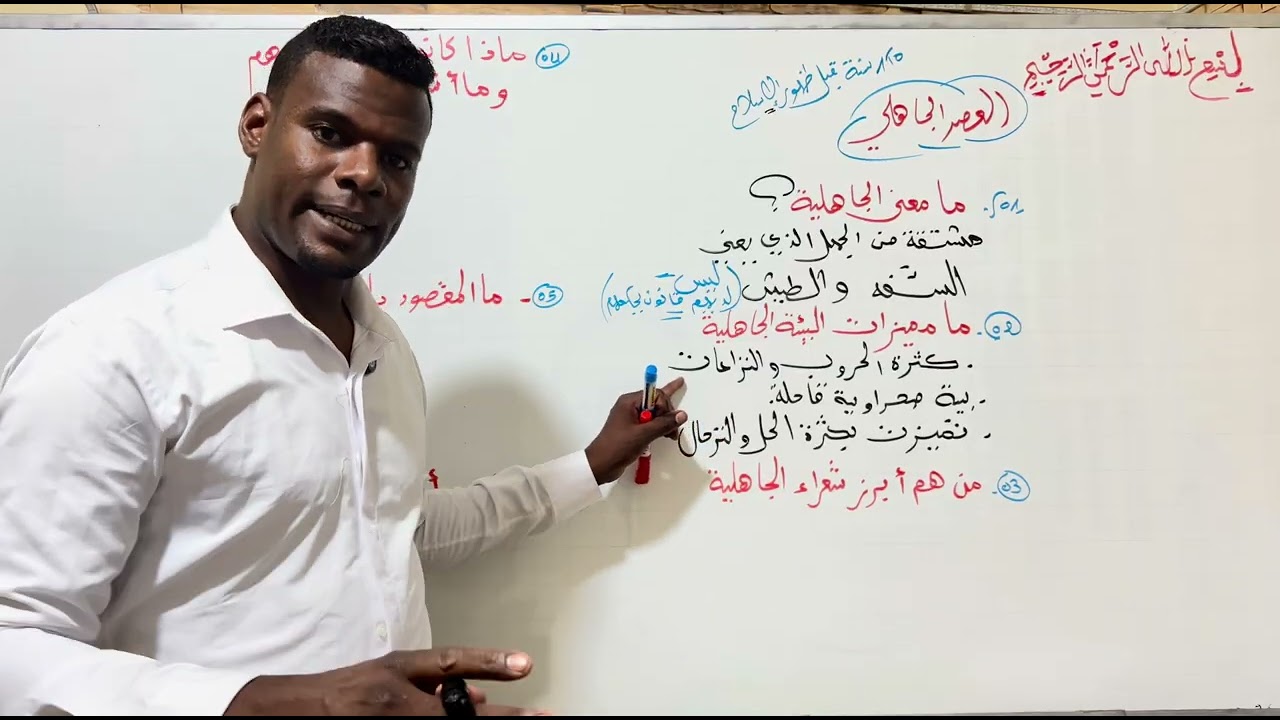 بسم الله الرحمن الرحيم
العصر الجاهلي
سنة قبل ظهور الإسلام
01. ما معنى الجاهلية؟
مشتقة من الجهل الذي يعني
السفه والطيش (ليس لديهم قانون يحكمهم)
02. ما مميزات البيئة الجاهلية
. كثرة الحروب والنزاعات
. بيئة صحراوية قاحلة.
. تميزت بكثرة الحل والترحال
03. من هم أبرز شعراء الجاهلية
04 ماذا كا هم
وما أ
05. ما المقصود